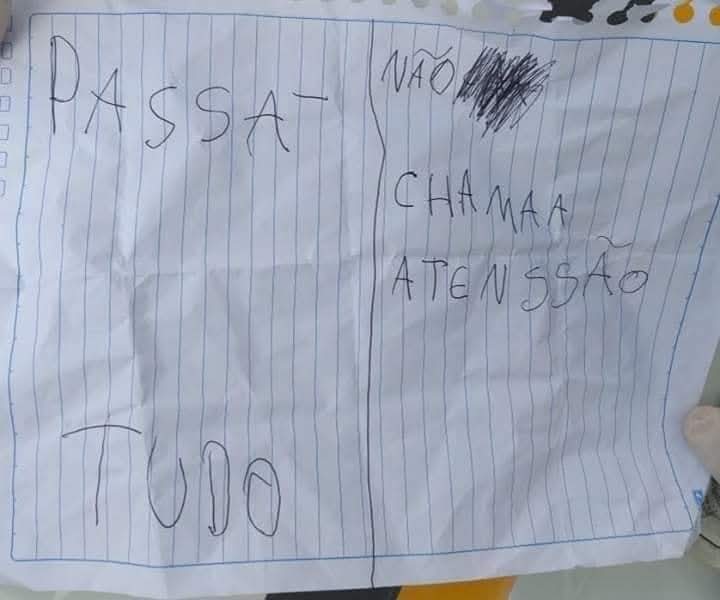 PASSA-
TUDO
NÃO
CHAMAA
ATENSSÃO